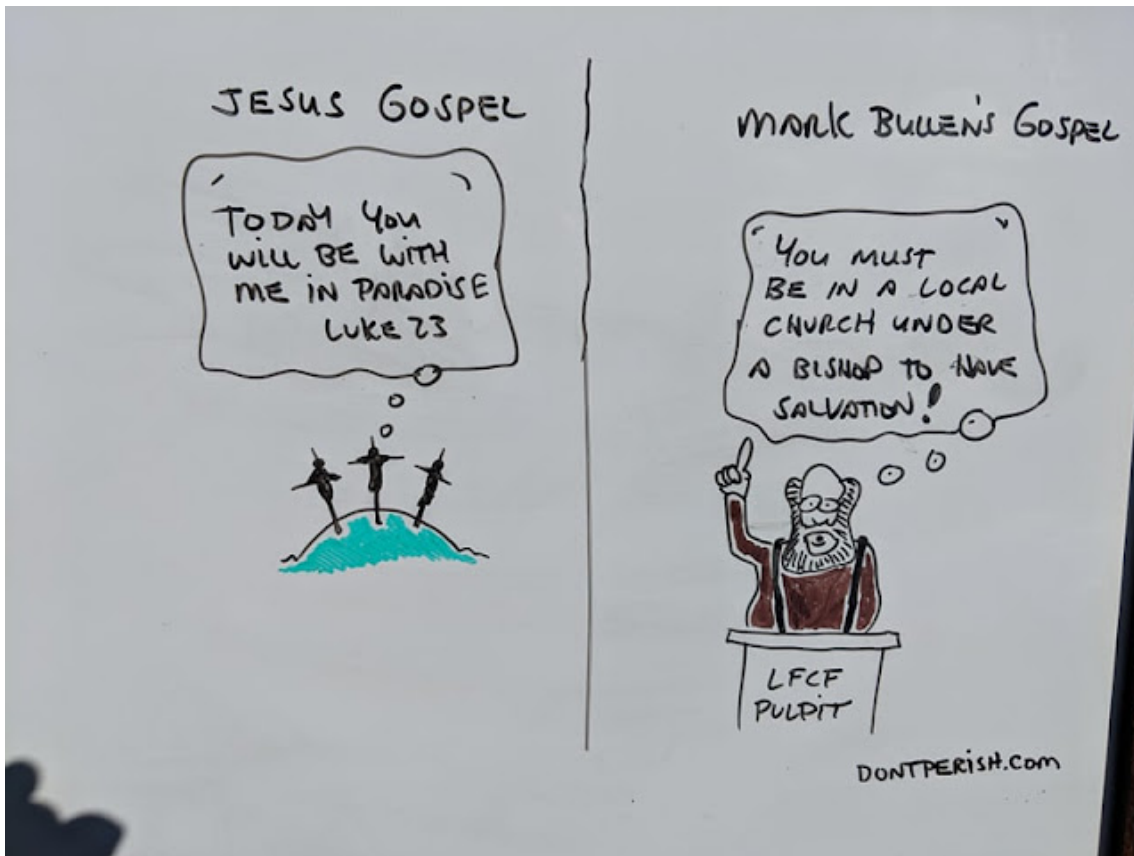 JESUS GOSPEL
TODAY YOU
WILL BE WITH
ME IN PARADISE
LUKE 23
MARK BULLEN'S GOSPEL
YOU MUST
BE IN A LOCAL
CHURCH UNDER
A BISHOP TO HAVE
SALVATION!
LFCF
PULPIT
DONTPERISH.COM